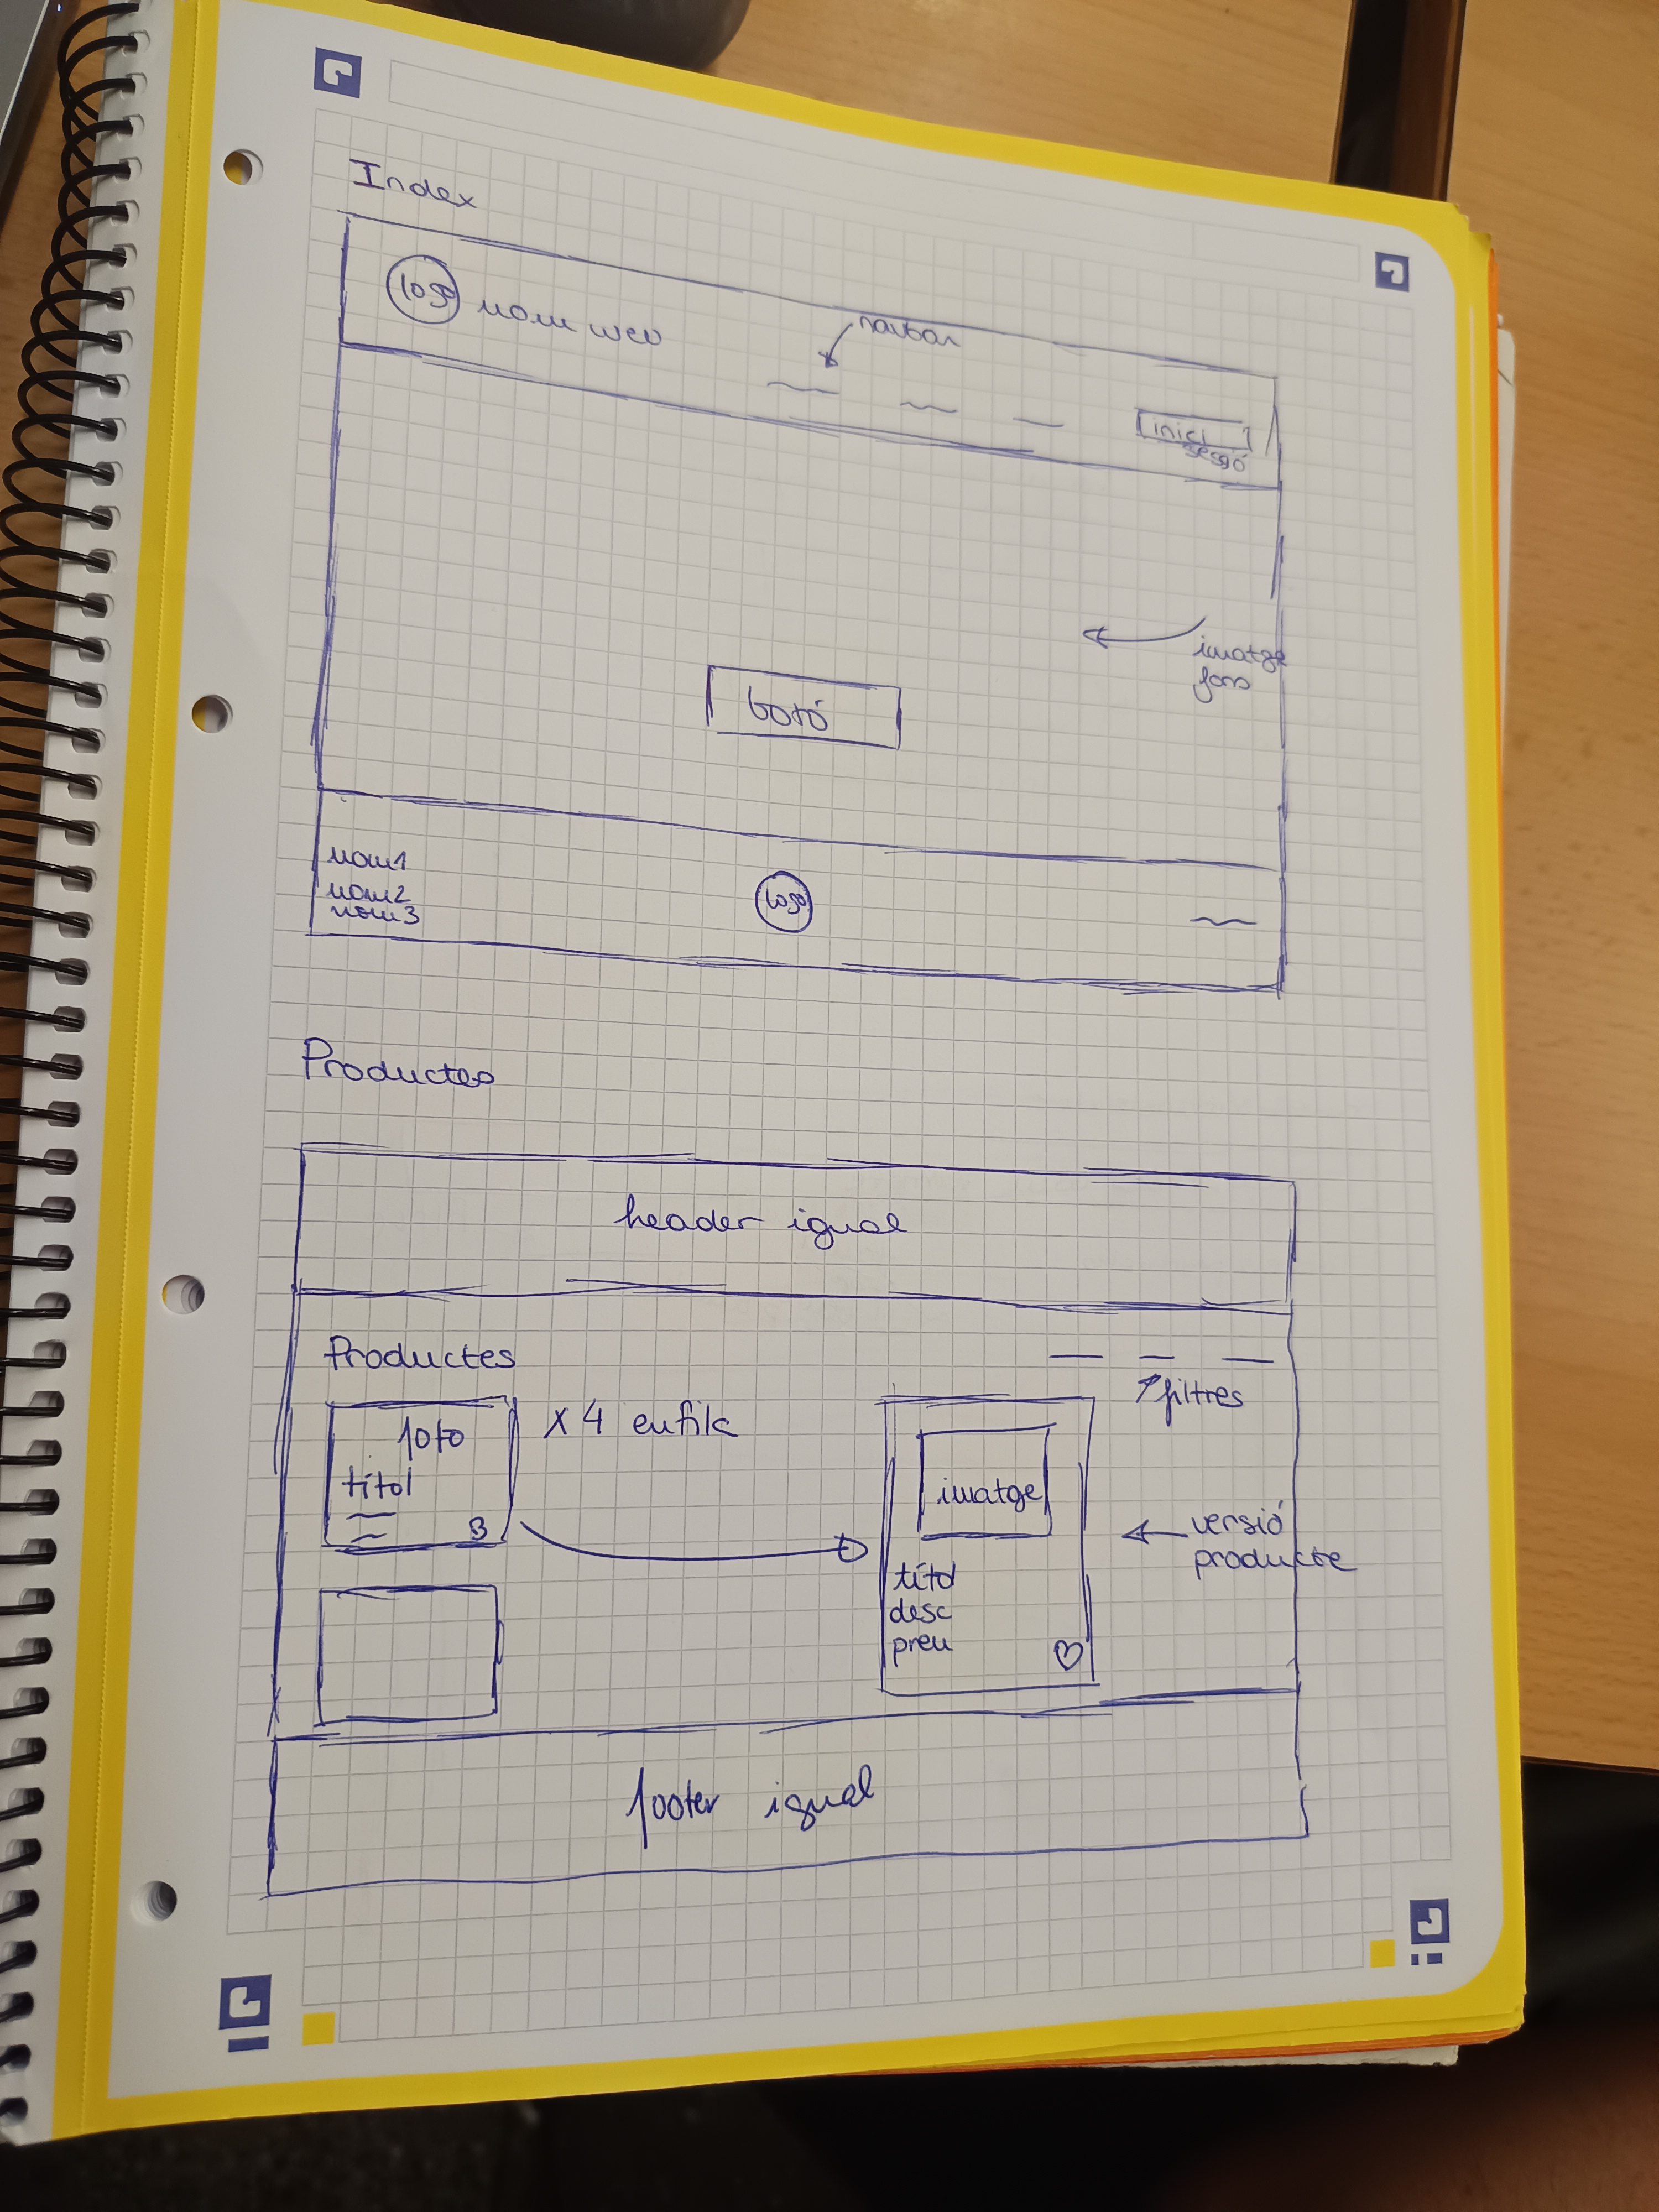 Index
logo nom web
navbar
inici
sessió
imatge
fons
botó
nom1
nom2
nom3
logo
Productes
header igual
Productes
filtres
foto
x 4 en fila
títol
imatge
versió
producte
títol
desc
preu
footer igual